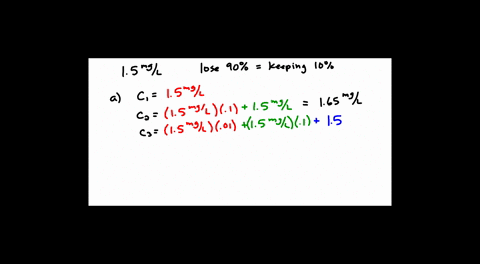 1.5 mg/L lose 90% = keeping 10%
a) C₁ = 1.5 mg/L
C₂ = (1.5 mg/L)(.1) + 1.5 mg/L = 1.65 mg/L
C₃ = (1.5 mg/L)(.01) + (1.5 mg/L)(.1) + 1.5